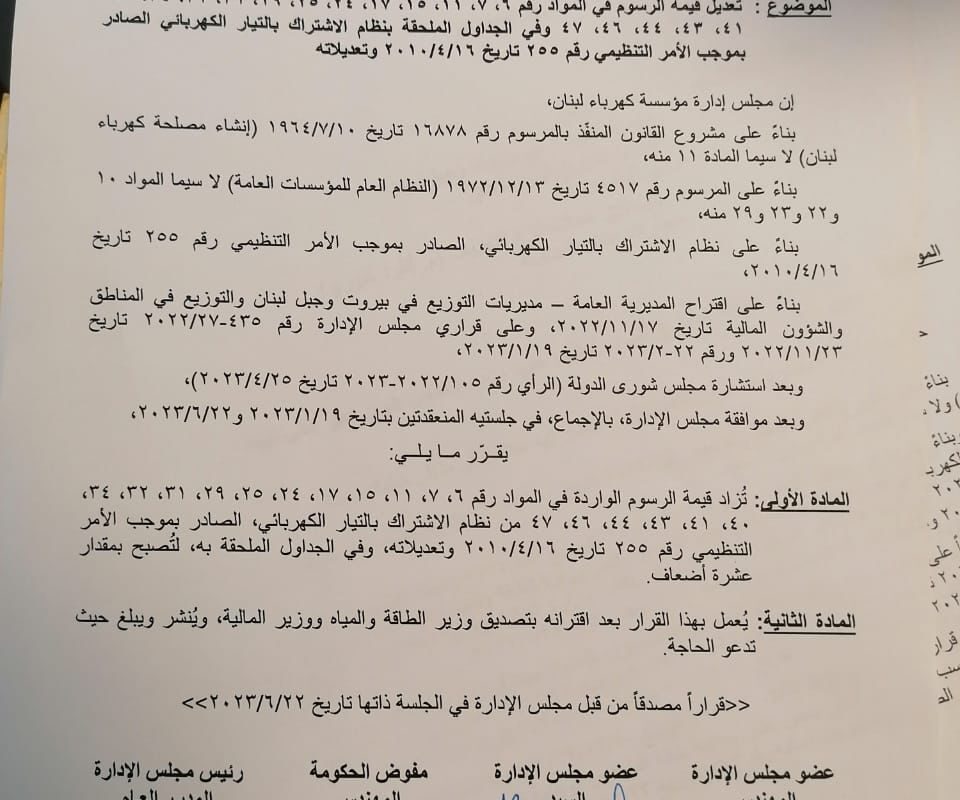 الموضوع : تعديل قيمة الرسوم في المواد رقم ٦، ٧، ١١، ١٥، ١٧، ٢٤، ٢٥، ٢٩،
٤١، ٤٣، ٤٤، ٤٦، ٤٧ وفي الجداول الملحقة بنظام الاشتراك بالتيار الكهربائي الصادر
بموجب الأمر التنظيمي رقم ٢٥٥ تاريخ ٢٠١٠/٤/١٦ وتعديلاته
إن مجلس إدارة مؤسسة كهرباء لبنان،
بناءً على مشروع القانون المنفّذ بالمرسوم رقم ١٦٨٧٨ تاريخ ١٩٦٤/٧/١٠ (إنشاء مصلحة كهرباء
لبنان) لا سيما المادة ١١ منه،
بناءً على المرسوم رقم ٤٥١٧ تاريخ ١٩٧٢/١٢/١٣ (النظام العام للمؤسسات العامة) لا سيما المواد ١٠
و٢٢ و٢٣ و٢٩ منه،
بناءً على نظام الاشتراك بالتيار الكهربائي، الصادر بموجب الأمر التنظيمي رقم ٢٥٥ تاريخ
٢٠١٠/٤/١٦،
بناءً على اقتراح المديرية العامة – مديريات التوزيع في بيروت وجبل لبنان والتوزيع في المناطق
والشؤون المالية تاريخ ٢٠٢٢/١١/١٧، وعلى قراري مجلس الإدارة رقم ٤٣٥-٢٠٢٢/٢٧ تاريخ
٢٠٢٢/١١/٢٣ ورقم ٢٢-٢٠٢٣/٢ تاريخ ٢٠٢٣/١/١٩،
وبعد استشارة مجلس شورى الدولة (الرأي رقم ٢٠٢٢/١٠٥-٢٠٢٣ تاريخ ٢٠٢٣/٤/٢٥)،
وبعد موافقة مجلس الإدارة، بالإجماع، في جلستيه المنعقدتين بتاريخ ٢٠٢٣/١/١٩ و٢٠٢٣/٦/٢٢،
يقـرّر مـا يلـي:
المادة الأولى: تُزاد قيمة الرسوم الواردة في المواد رقم ٦، ٧، ١١، ١٥، ١٧، ٢٤، ٢٥، ٢٩، ٣١، ٣٢، ٣٤،
٤٠، ٤١، ٤٣، ٤٤، ٤٦، ٤٧ من نظام الاشتراك بالتيار الكهربائي، الصادر بموجب الأمر
التنظيمي رقم ٢٥٥ تاريخ ٢٠١٠/٤/١٦ وتعديلاته، وفي الجداول الملحقة به، لتُصبح بمقدار
عشرة أضعاف.
المادة الثانية: يُعمل بهذا القرار بعد اقترانه بتصديق وزير الطاقة والمياه ووزير المالية، ويُنشر ويبلغ حيث
تدعو الحاجة.
<<قراراً مصدقاً من قبل مجلس الإدارة في الجلسة ذاتها تاريخ ٢٠٢٣/٦/٢٢>>
عضو مجلس الإدارة عضو مجلس الإدارة مفوض الحكومة رئيس مجلس الإدارة
المهندس السيد المهندس المدير العام